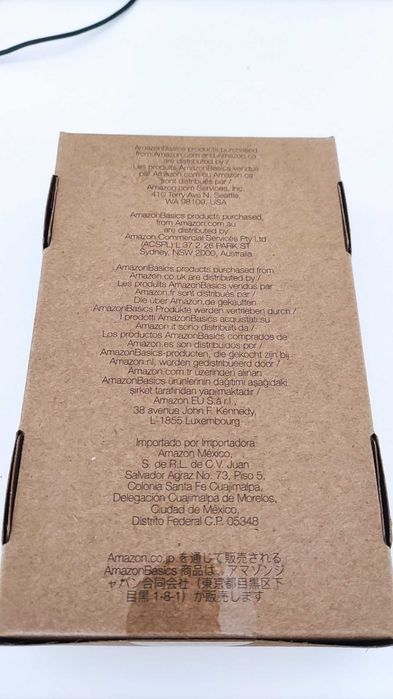 AmazonBasics products purchased
from Amazon.com and Amazon.ca
are distributed by /
Les produits AmazonBasics vendus
par Amazon.com ou Amazon.ca
sont distribués par /
Amazon.com Services, Inc.
410 Terry Ave N. Seattle,
WA 98109, USA
AmazonBasics products purchased
from Amazon.com.au
are distributed by
Amazon Commercial Services Pty Ltd
(ACSPL) L 37 2 26 PARK ST
Sydney, NSW 2000, Australia
AmazonBasics products purchased from
Amazon.co.uk are distributed by /
Les produits AmazonBasics vendus par
Amazon.fr sont distribués par /
Die über Amazon.de gekauften
AmazonBasics Produkte werden vertrieben durch /
I prodotti AmazonBasics acquistati su
Amazon.it sono distribuiti da /
Los productos AmazonBasics comprados de
Amazon.es son distribuidos por /
AmazonBasics-producten, die gekocht zijn bij
Amazon.nl, worden gedistribueerd door /
Amazon.com.tr üzerinden alınan
AmazonBasics ürünlerinin dağıtımı aşağıdaki
şirket tarafından yapılmaktadır /
Amazon EU S.à r.l.,
38 avenue John F. Kennedy,
L-1855 Luxembourg
Importado por Importadora
Amazon México,
S. de R.L. de C.V. Juan
Salvador Agraz No. 73, Piso 5,
Colonia Santa Fe Cuajimalpa,
Delegación Cuajimalpa de Morelos,
Ciudad de México,
Distrito Federal C.P. 05348
Amazon.co.jp を通して販売される
AmazonBasics 商品は、アマゾンジ
ャパン合同会社（東京都目黒区下
目黒 1-8-1）が販売します